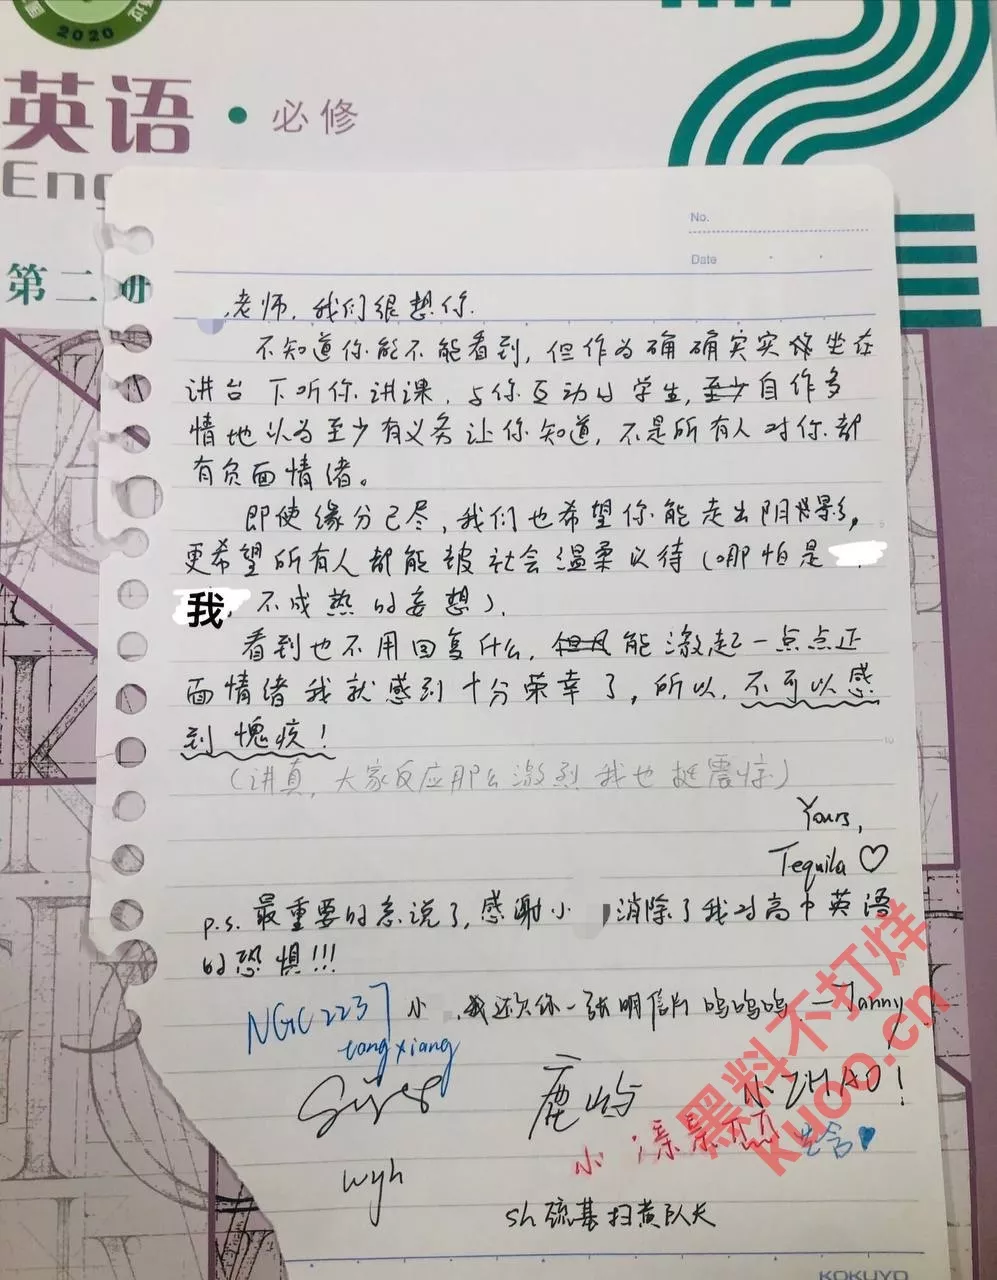 2020
英语·必修
Eng
第二册
No.
Date
老师，我们很想你.
不知道你能不能看到，但作为确确实实坐在
讲台下听你讲课，与你互动的学生，至少自作多
情地以为至少有义务让你知道，不是所有人对你都
有负面情绪。
即使缘分已尽，我们也希望你能走出阴影，
更希望所有人都能被社会温柔以待（哪怕是
我 不成熟的妄想）.
看到也不用回复什么，但凡能激起一点点正
面情绪我就感到十分荣幸了，所以，不可以感
到愧疚！
（讲真，大家反应那么激烈我也挺震惊）
Yours,
Tequila♡
p.s. 最重要的忘说了，感谢小 消除了我对高中英语
的恐惧!!!
NGC2237 小 ，我还欠你一张明信片呜呜呜 —Janny
tongxiang
鹿屿 小ZHAO!
小
wyh
sh巯基扫黄队长
KOKUYO
黑料不打烊
kuoo.cn